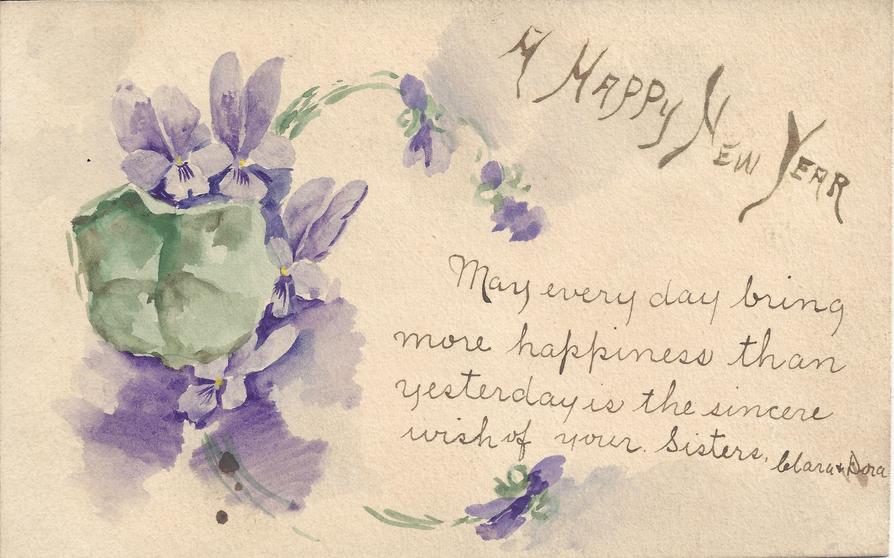 A Happy New Year
May every day bring
more happiness than
yesterday is the sincere
wish of your Sisters,
Clara & Dora